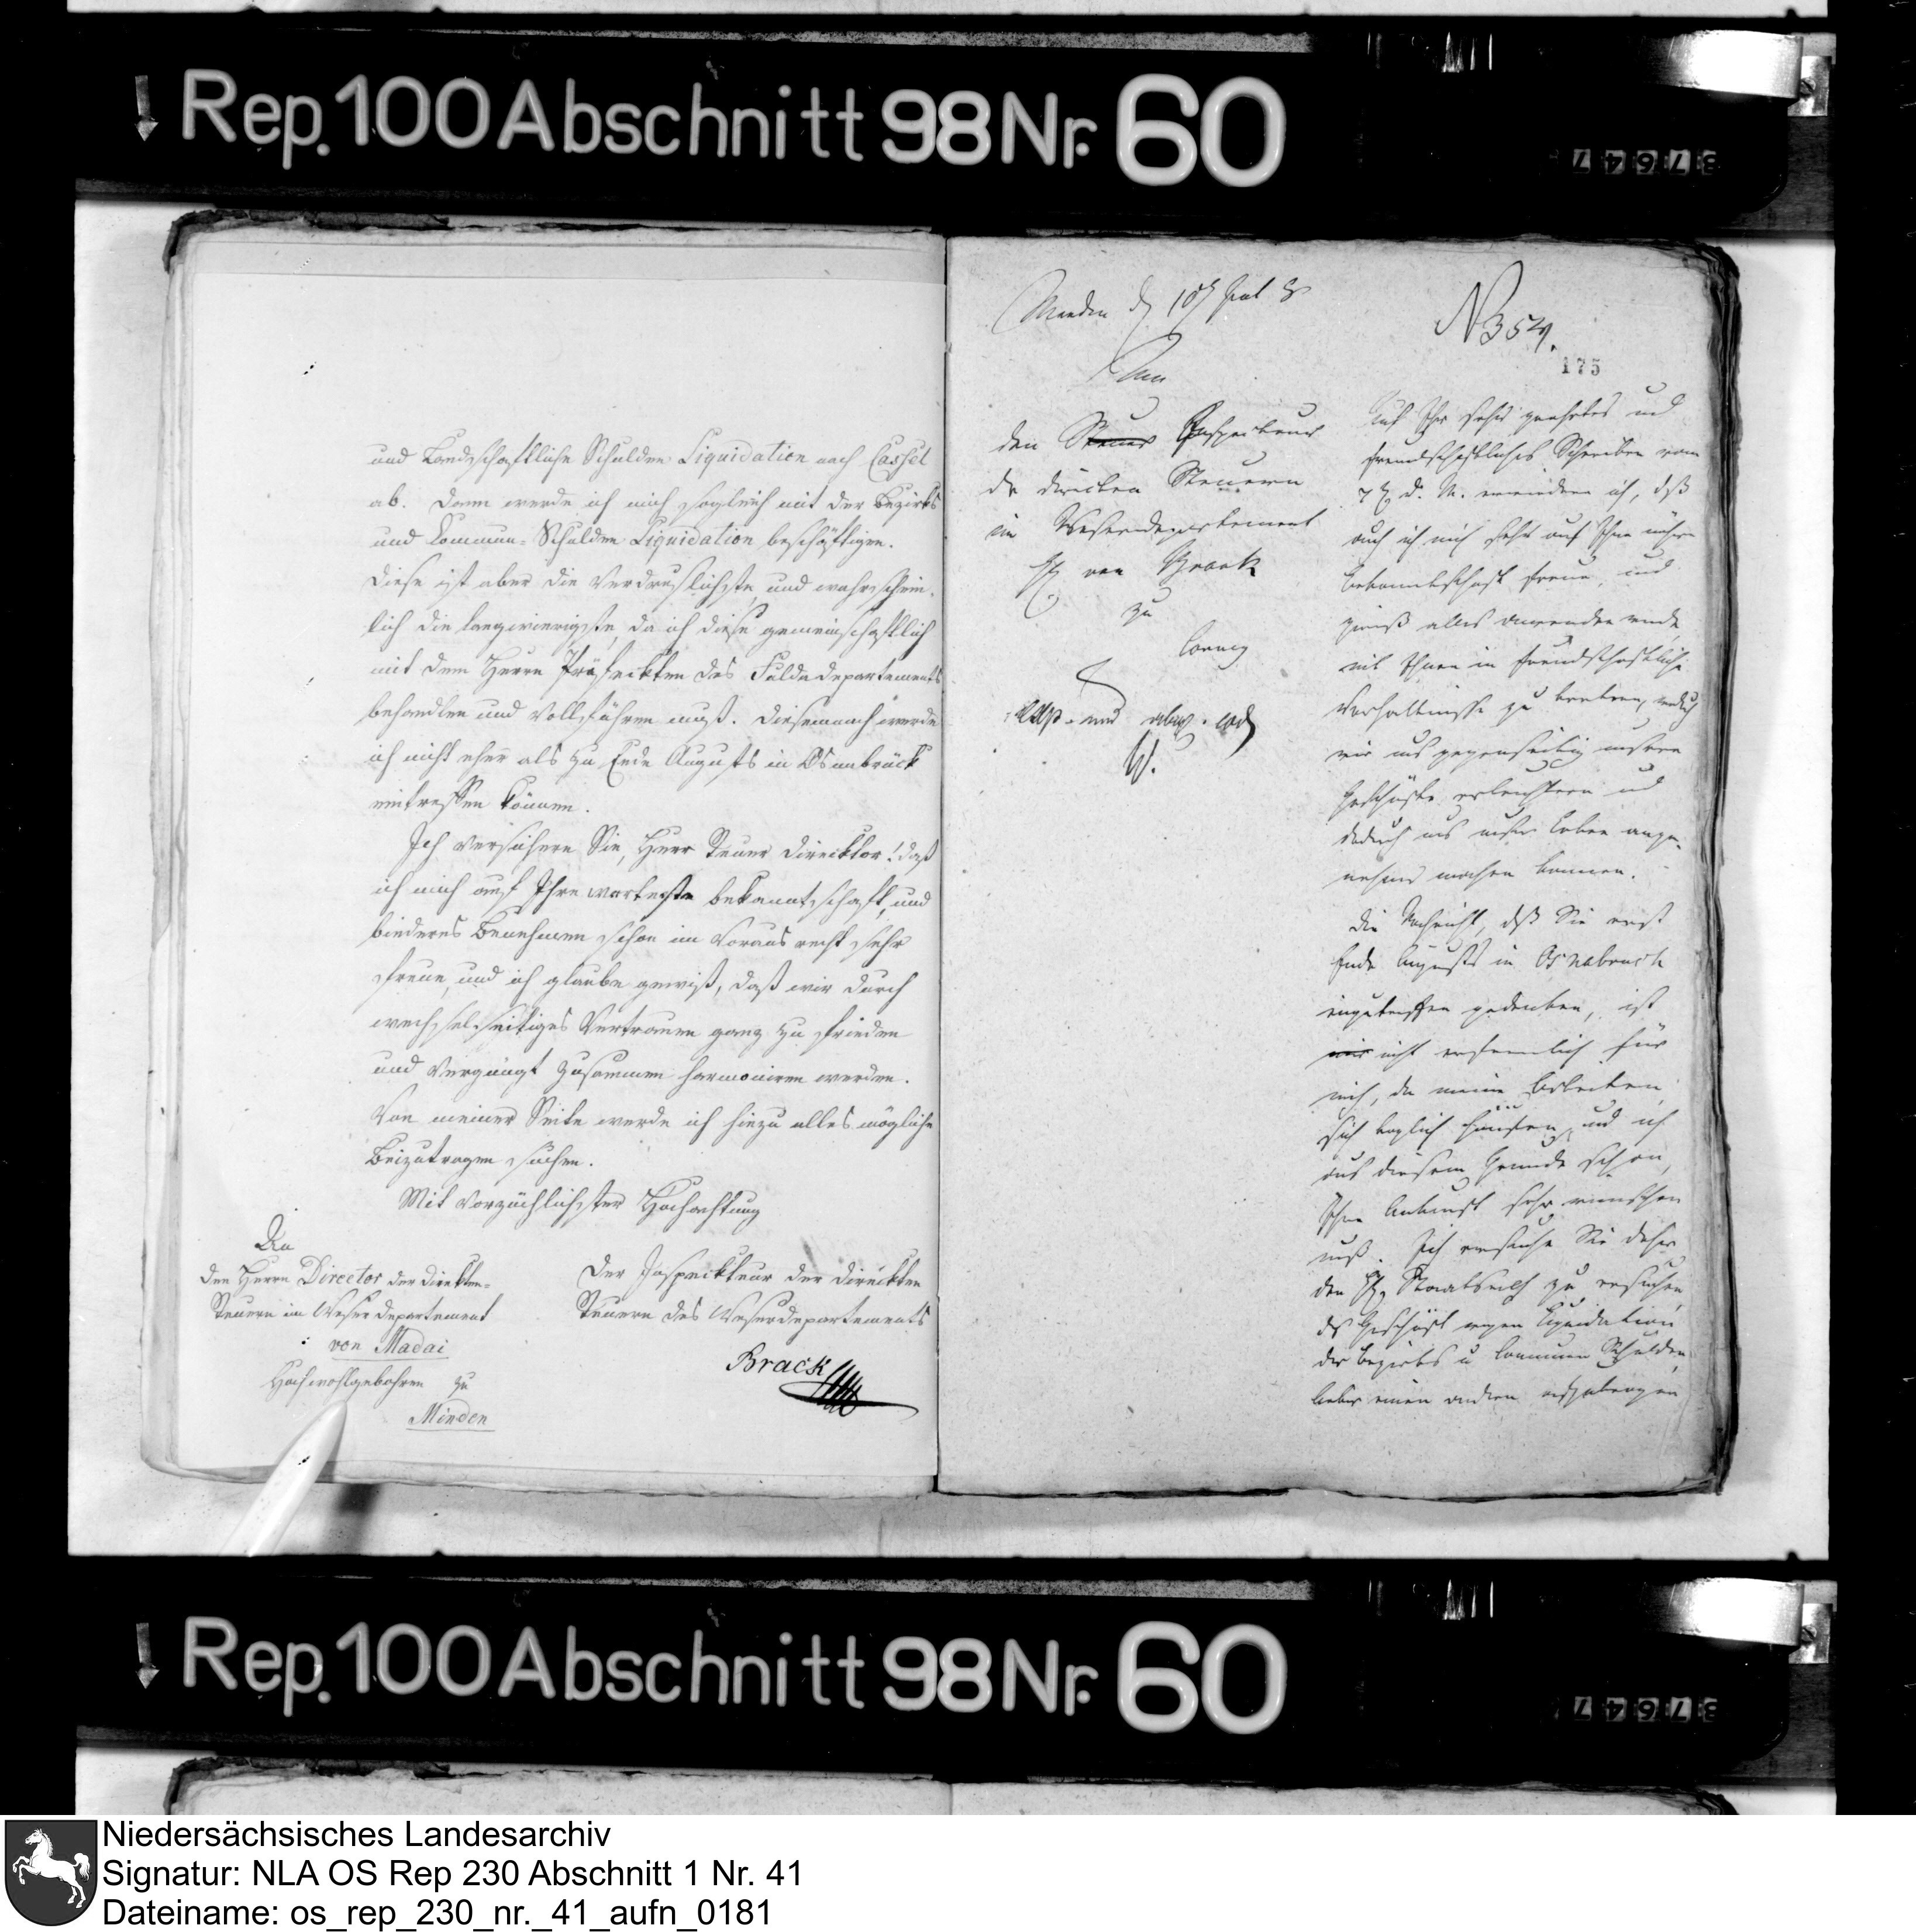 Rep. 100 Abschnitt 98 Nr. 60
37647
und Landschaftliche Schulden Liquidation nach Cassel
ab. Dann werde ich mich sogleich mit der Bezirks
und Commun-Schulden Liquidation beschäftigen.
Diese ist aber die Verdruslichste und wahrschein-
lich die langwierigste, da ich diese gemeinschaftlich
mit dem Herrn Präfeckten des Fuldedepartements
behandlen und vollführen muß. Diesemnach werde
ich nicht eher als zu Ende Augusts in Osnabrück
eintreffen können.
Ich versichere Sie, Herr Steuer Direcktor! daß
ich mich auf Ihre wertheste bekanntschaft, und
biederes Benehmen schon im Voraus recht sehr
freue, und ich glaube gewiß, daß wir durch
wechselseitiges Vertrauen ganz zu frieden
und vergnügt zusammen harmoniren werden.
Von meiner Seite werde ich hiezu alles mögliche
beizutragen suchen.
Mit vorzüchlichster Hochachtung
Der Inspeckteur der direckten
Steuern des Weserdepartements
Brack
An
den Herrn Director der direkten-
Steuern im Weser departement
von Madai
Hochwohlgebohren zu
Minden
Minden d 10t
N 354.
175
An
den Steuer Inspecteur
der directen Steuern
im Weserdepartement
H. von Brack
zu
Auf Ihr sehr geehrtes und
freundschaftliches Schreiben vom
7t d. M. erwiedere ich, daß
auch ich mich sehr auf Ihre nähere
Bekanntschaft freue, und
gewiß alles anwenden werde
mit Ihnen in freundschaftliche
Verhältnisse zu treten, wodurch
wir uns gegenseitig unsere
Geschäfte erleichtern und
dadurch uns unser Leben ange-
nehmer machen können.
Die Nachricht, daß Sie erst
Ende Augusts in Osnabruck
einzutreffen gedenken, ist
mir nicht erfreulich für
mich, da meine Arbeiten
sich täglich häufen, und ich
aus diesem Grunde schon,
Ihre Ankunft sehr wünschen
muß. Ich ersuche Sie daher
den H. Staatsrath zu ersuchen,
das Geschäft wegen Liquidation
der Bezirks u Communen Schulden,
lieber einem andern
Rep. 100 Abschnitt 98 Nr. 60
37647
Niedersächsisches Landesarchiv
Signatur: NLA OS Rep 230 Abschnitt 1 Nr. 41
Dateiname: os_rep_230_nr._41_aufn_0181